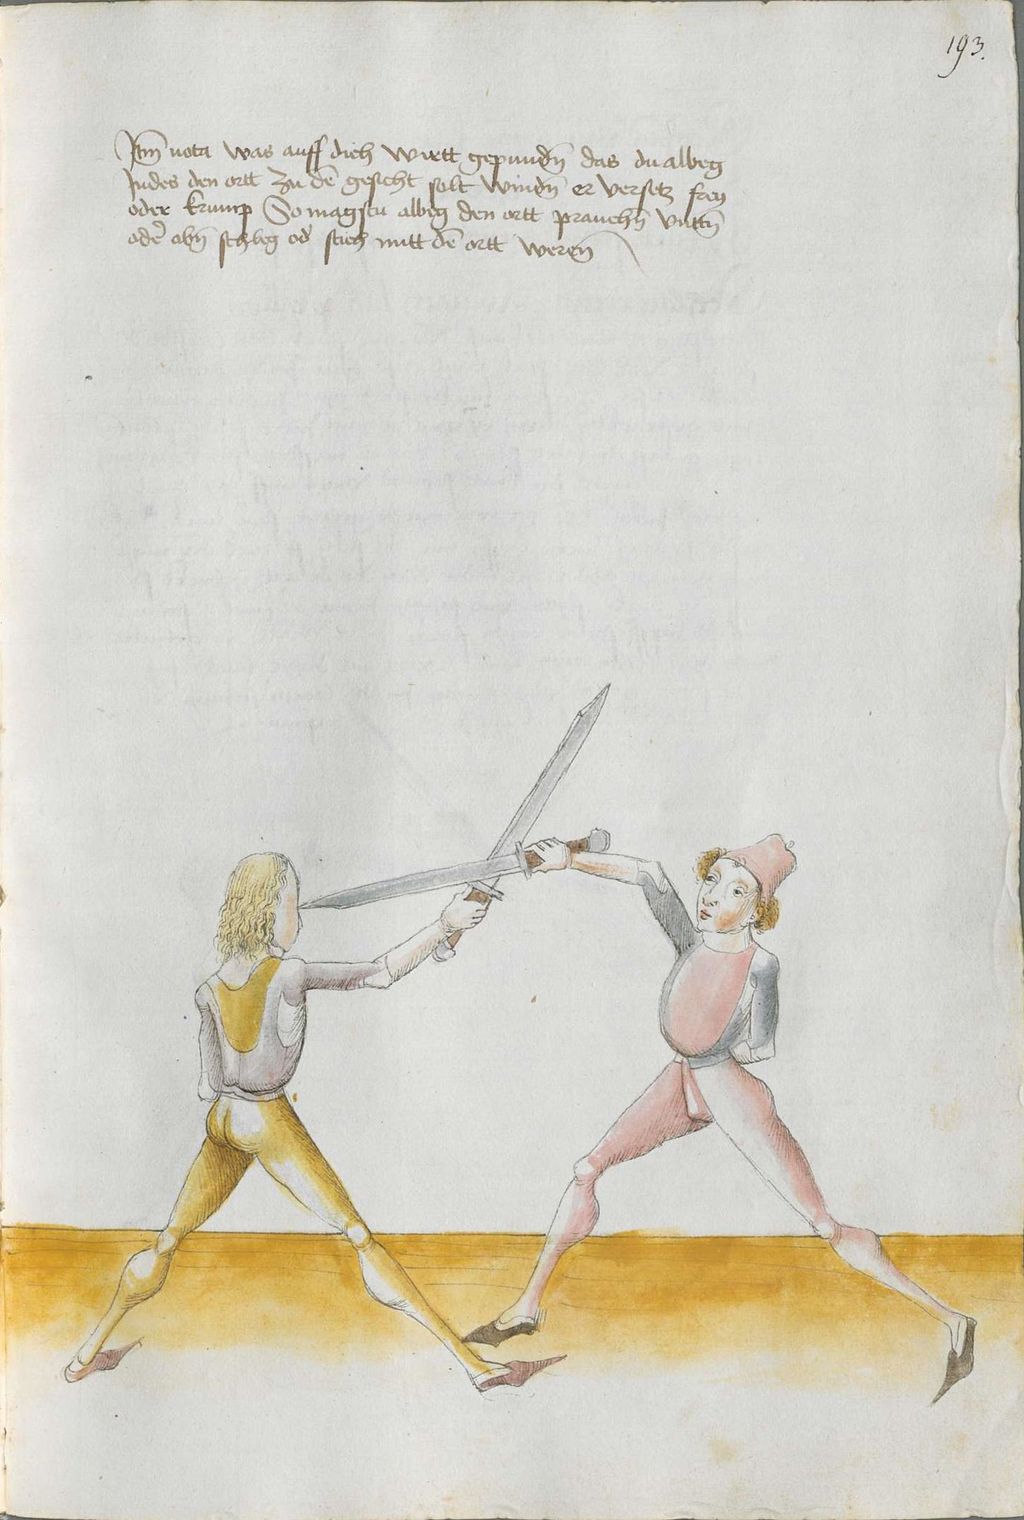 193.
Itm̄ nota was auff dich wirtt gepundñ das du albeg
Indes den ortt zu dē gesicht solt windñ er versetz frey
oder krump So magstu albeg den ortt prauchñ vnttñ
odē obñ schleg od stich mitt dē ortt werñ